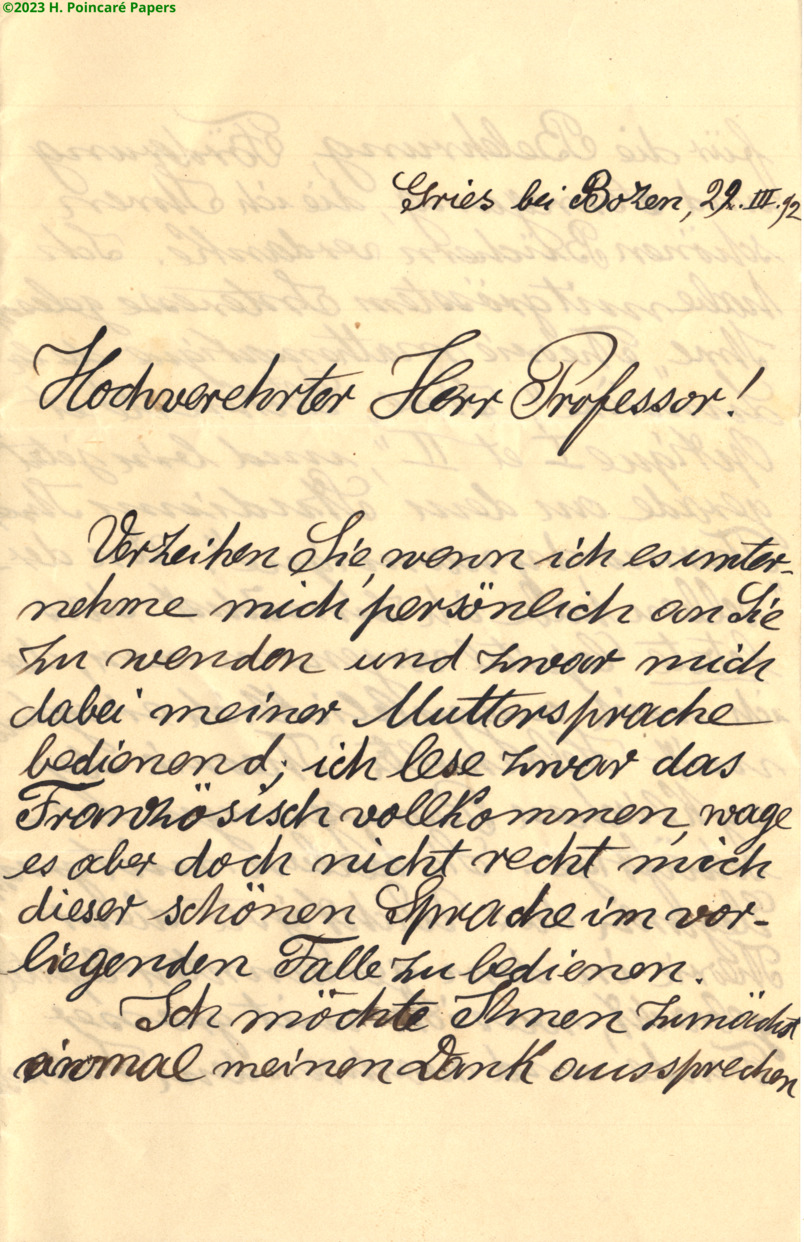 ©2023 H. Poincaré Papers
Gries bei Bozen, 22. III. 92
Hochverehrter Herr Professor!
Verzeihen Sie, wenn ich es unter-
nehme mich persönlich an Sie
zu wenden und zwar mich
dabei meiner Muttersprache
bedienend; ich lese zwar das
Französisch vollkommen, wage
es aber doch nicht recht mich
dieser schönen Sprache im vor-
liegenden Falle zu bedienen.
Ich möchte Ihnen zunächst
einmal meinen Dank aussprechen